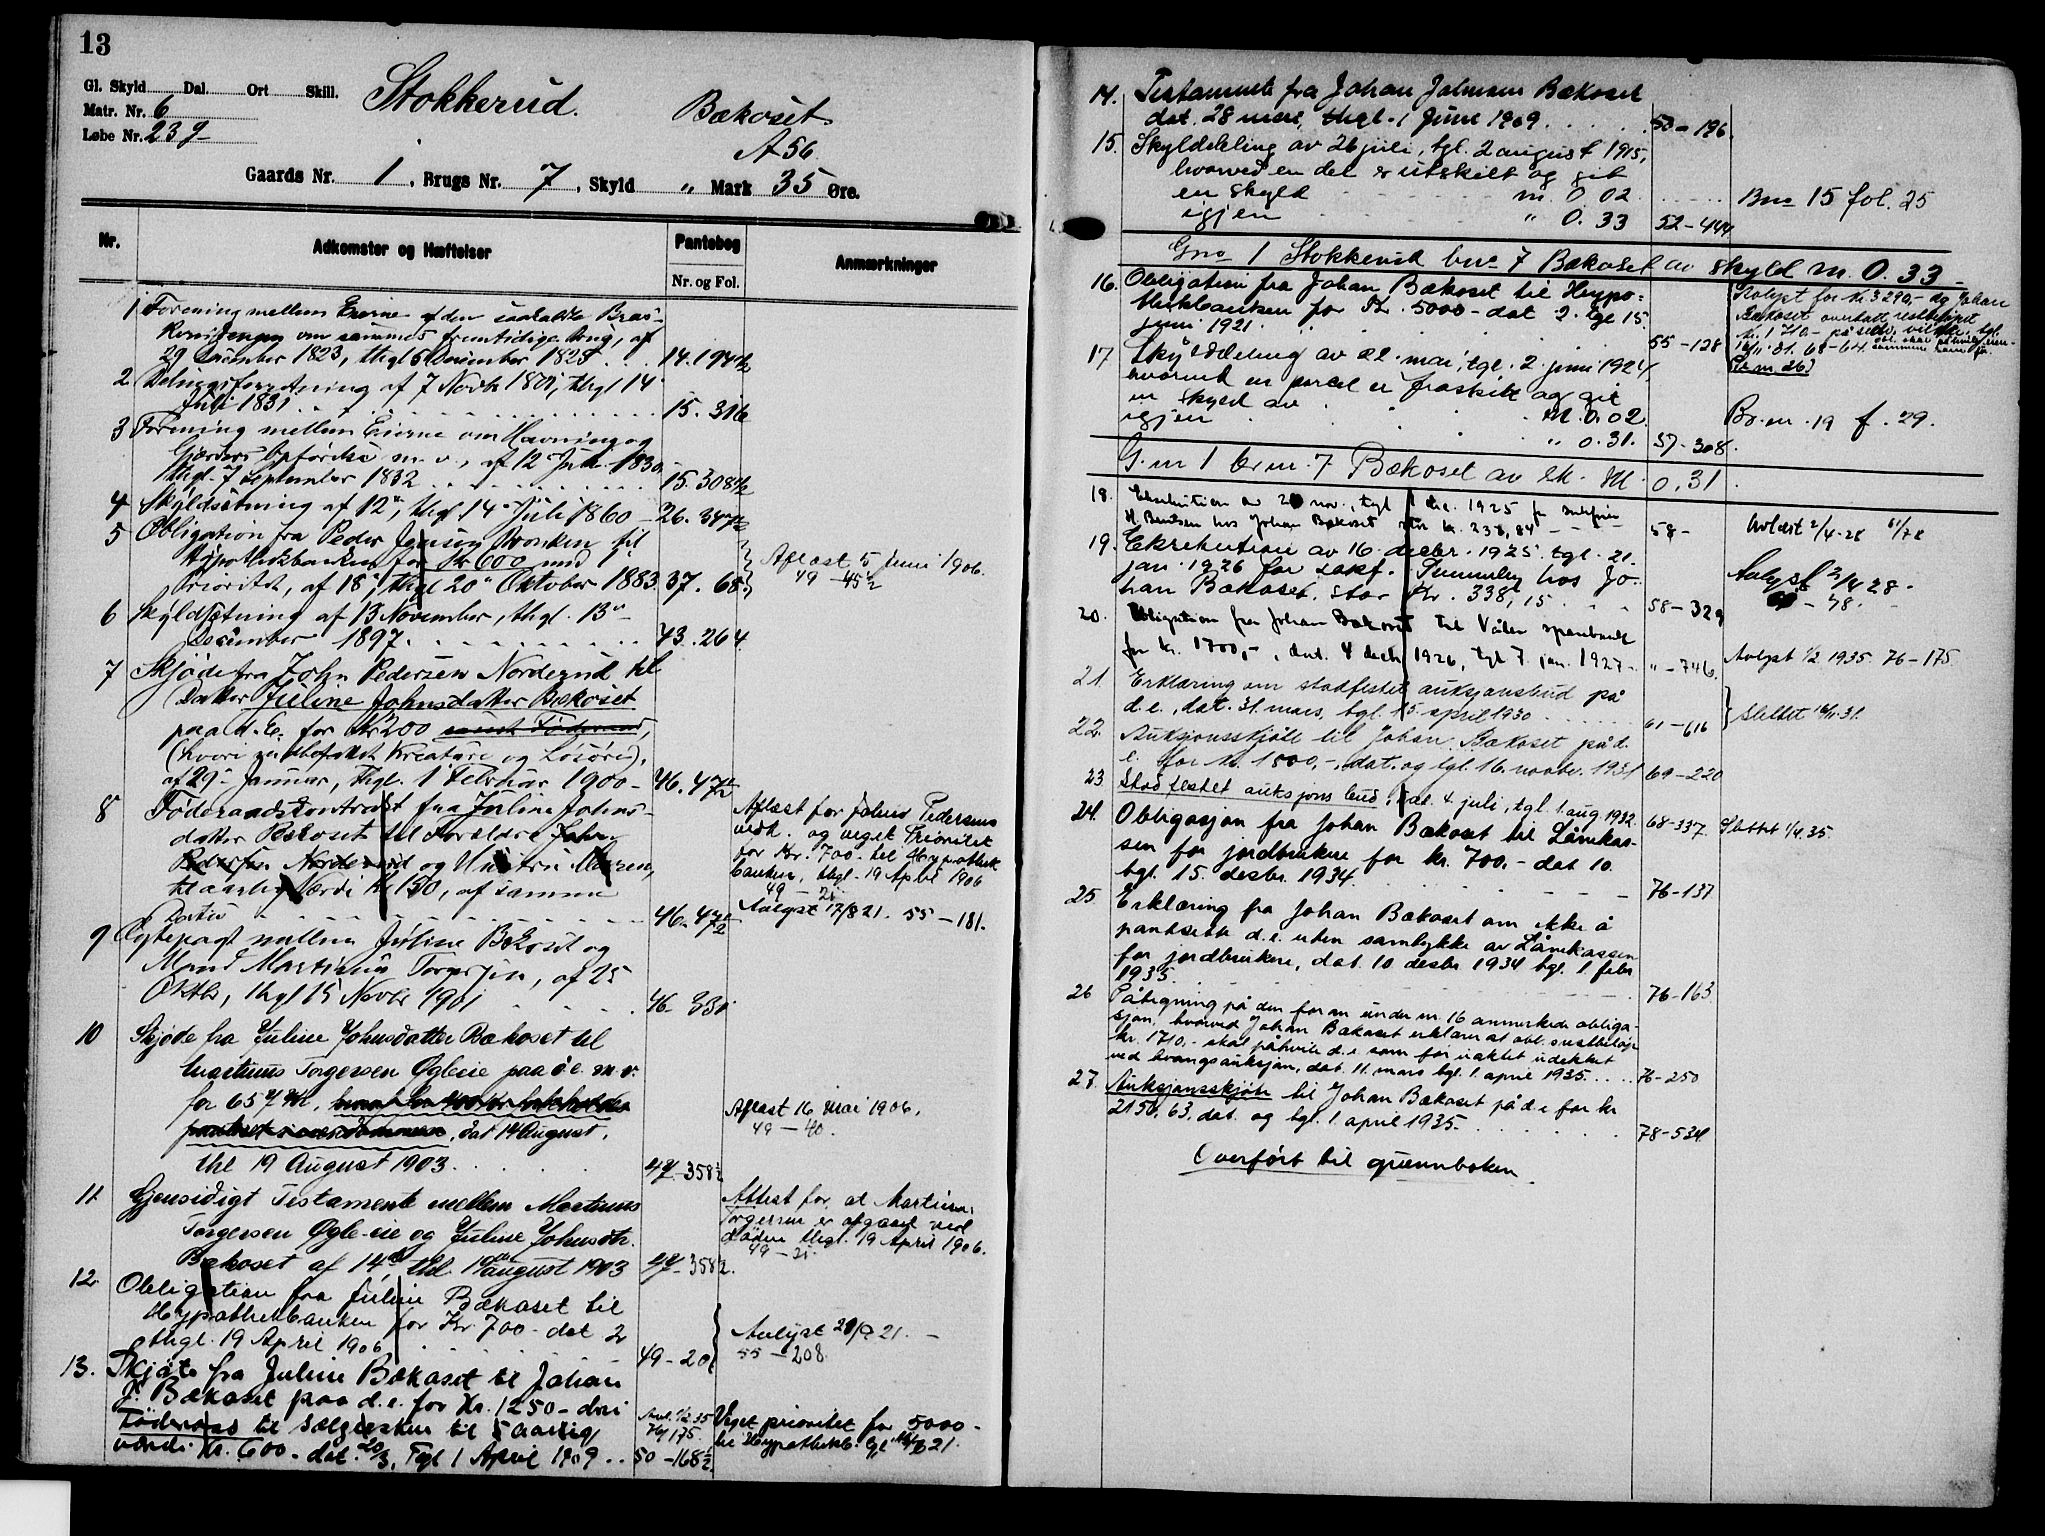 13
Gl. Skyld Dal. Ort Skill.
Matr. Nr. 6
Løbe Nr. 23
Stokkerud. Bækoset
A 56
Gaards Nr. 1, Brugs Nr. 7, Skyld " Mark 35 Øre.
Nr. Adkomster og Hæftelser Pantebog Nr. og Fol. Anmærkninger
1 Forening mellem Eierne af den
om sammes fremtidige Brug, af
29 December 1823, thgl 6 December 1828 14. 194½
2 Delingsforretning af 7 Novbr 18, thgl 14
Juli 1831 15. 316
3 Forening mellem Eierne om Havning og
Gjærders Opførelse m. v., af 12 Juli 1830,
thgl. 7 September 1832 15. 308½
4 Skyldsætning af 12", thgl 14" Juli 1860 26. 347½
5 Obligation fra Peder Jensen til
Hypothekbanken for Kr 600 med 1
Prioritet, af 18", thgl 20" Oktober 1883 37. 68. Aflæst 5 Juni 1906.
49 - 45½
6 Skyldsætning af 13 November, thgl. 13"
December 1897. 43. 264
7 Skjøde fra John Pedersen Norderud til
Datter Juline Johnsdatter Bækoset
paa d. E. for Kr 200 samt Føderaad,
(hvori er Kreature og Løsøre),
af 29" Januar, thgl. 1 Februar 1900 - 46. 47½
8 Føderaadskontrakt fra Juline Johns-
datter Bækoset til Forældre John
Pedersen Norderud og Hustru Maren,
til aarlig Værdi Kr 150, af samme
Datis 46. 47½
Aflæst for Johns Pedersens
vedk. og veget Prioritet
for Kr. 700 - til Hypothek
banken, thgl. 19 April 1906
49 - 2
Avlyst 17/8 21. 55 - 181.
9 Ægtepagt mellem Juline Bækoset og
Mand Martinus Torgersen, af 25
Oktbr, thgl 15 Novbr 1901 46 - 330
10 Skjøde fra Juline Johnsdatter Bækoset til
Martinus Torgersen Ogleeie paa d. e. m. v.
for 657 Kr,
, dat 14 August,
thl 19 August 1903. 47. 358½
Aflæst 16 Mai 1906.
49 - 40.
11 Gjensidigt Testamente mellem Martinus
Torgersen Ogle-eie og Juline Johnsdtr.
Bækoset af 14de thl. 19de August 1903 47 - 358½.
Attest for, at Martinus
Torgersen er afgaaet ved
Døden thgl. 19 April 1906.
49 - 2
12 Obligation fra Juline Bækoset til
Hypothekbanken for Kr 700 - dat 2
thgl. 19 April 1906 49 - 20
Avlyst 21.
55 - 208.
13. Skjøte fra Juline Bækoset til Johan
J. Bækoset paa d. e. for Kr. 1250 - deri
Føderaad til Sælgersken til 5 aarlig
værdi Kr. 600 - dat. 20/3, Tgl 1 April 1909 50 - 168½.
Avl. 1/2 35
76/175.
Veget prioritet for 5000 -
til Hypothekb. 21.
14. Testamente fra Johan Johnsen Bækoset
dat. 28 mai, thgl. 1 Juni 1909. 50 - 196.
15. Skylddeling av 26 juli, tgl. 2 august 1915,
hvorved en del er utskilt og git
en skyld m. 0. 02. Bno 15 fol. 25
igjen " 0. 33 52 - 444
Gno 1 Stokkerud bno 7 Bækoset av skyld m. 0. 33 -
16. Obligation fra Johan Bækoset til Hypo-
thekbanken for Kr. 5000 - dat 2. tgl 15.
juni 1921. 55 - 128
Avlyst for kr. 3290,- og Johan
Bækoset overtatt restbeløpet
kr. 1710 - på
16/11 31. 68 - 64.
(se nr. 26)
17 Skylddeling av 22. mai, tgl. 2. juni 1924,
hvorved en parcel er fraskilt og git
en skyld av M. 0. 02. Br. nr. 19 f. 29.
igjen " 0. 31. 57 - 308.
G. nr 1 br. nr. 7 Bækoset av sk. M. 0. 31.
18. Eksekution av 20 nov., tgl 1 dec. 1925 fr
H. Bentsen hos Johan Bækoset stor kr. 238,84 - 58 - Avlæst 2/4-28 /78
19. Eksekution av 16. desbr. 1925, tgl. 21.
jan. 1926 for sakf. hos Jo-
han Bækoset, stor kr. 338,15 58 - 329
Avlyst 2/4 28.
- 78.
20. Obligation fra Johan Bækoset til Våler sparebank
for kr. 1700,-, dat. 4 decb. 1926, tgl 7. jan. 1927 - " - 746. Avlyst 1/2 1935. 76 - 175
21. Erklæring om stadfestet auksjonsbud på
d. e., dat. 31. mars, tgl. 15. april 1930 61 - 616 Slettet 16/11 31.
22. Auksjonsskjøte til Johan Bækoset på d.
e. for kr. 1500,-, dat. og tgl. 16. novbr. 1931 69 - 220
23 Stadfestet auksjonsbud, dat. 4. juli, tgl. 1. aug 1932. 68 - 337 Slettet 1/4 35.
24. Obligasjon fra Johan Bækoset til Lånekas-
sen for jordbrukere for kr. 700,- dat 10.
tgl. 15. desbr. 1934. 76 - 137
25 Erklæring fra Johan Bækoset om ikke å
pantsette d. e. uten samtykke av Lånekassen
for jordbrukere, dat. 10 desbr 1934 tgl. 1 febr
1935 76 - 163
26 Påtegning på den foran under nr. 16 anmerkede obliga-
sjon, hvorved Johan Bækoset erklærer at obl.s restbeløp
kr. 1710,- skal påhvile d. e. som før uaktet udekket
ved tvangsauksjon, dat. 11. mars tgl. 1. april 1935. 76 - 250
27. Auksjonsskjøte til Johan Bækoset på d. e for kr
2150,63, dat. og tgl. 1. april 1935. 78 - 534
Overført til grunnboken